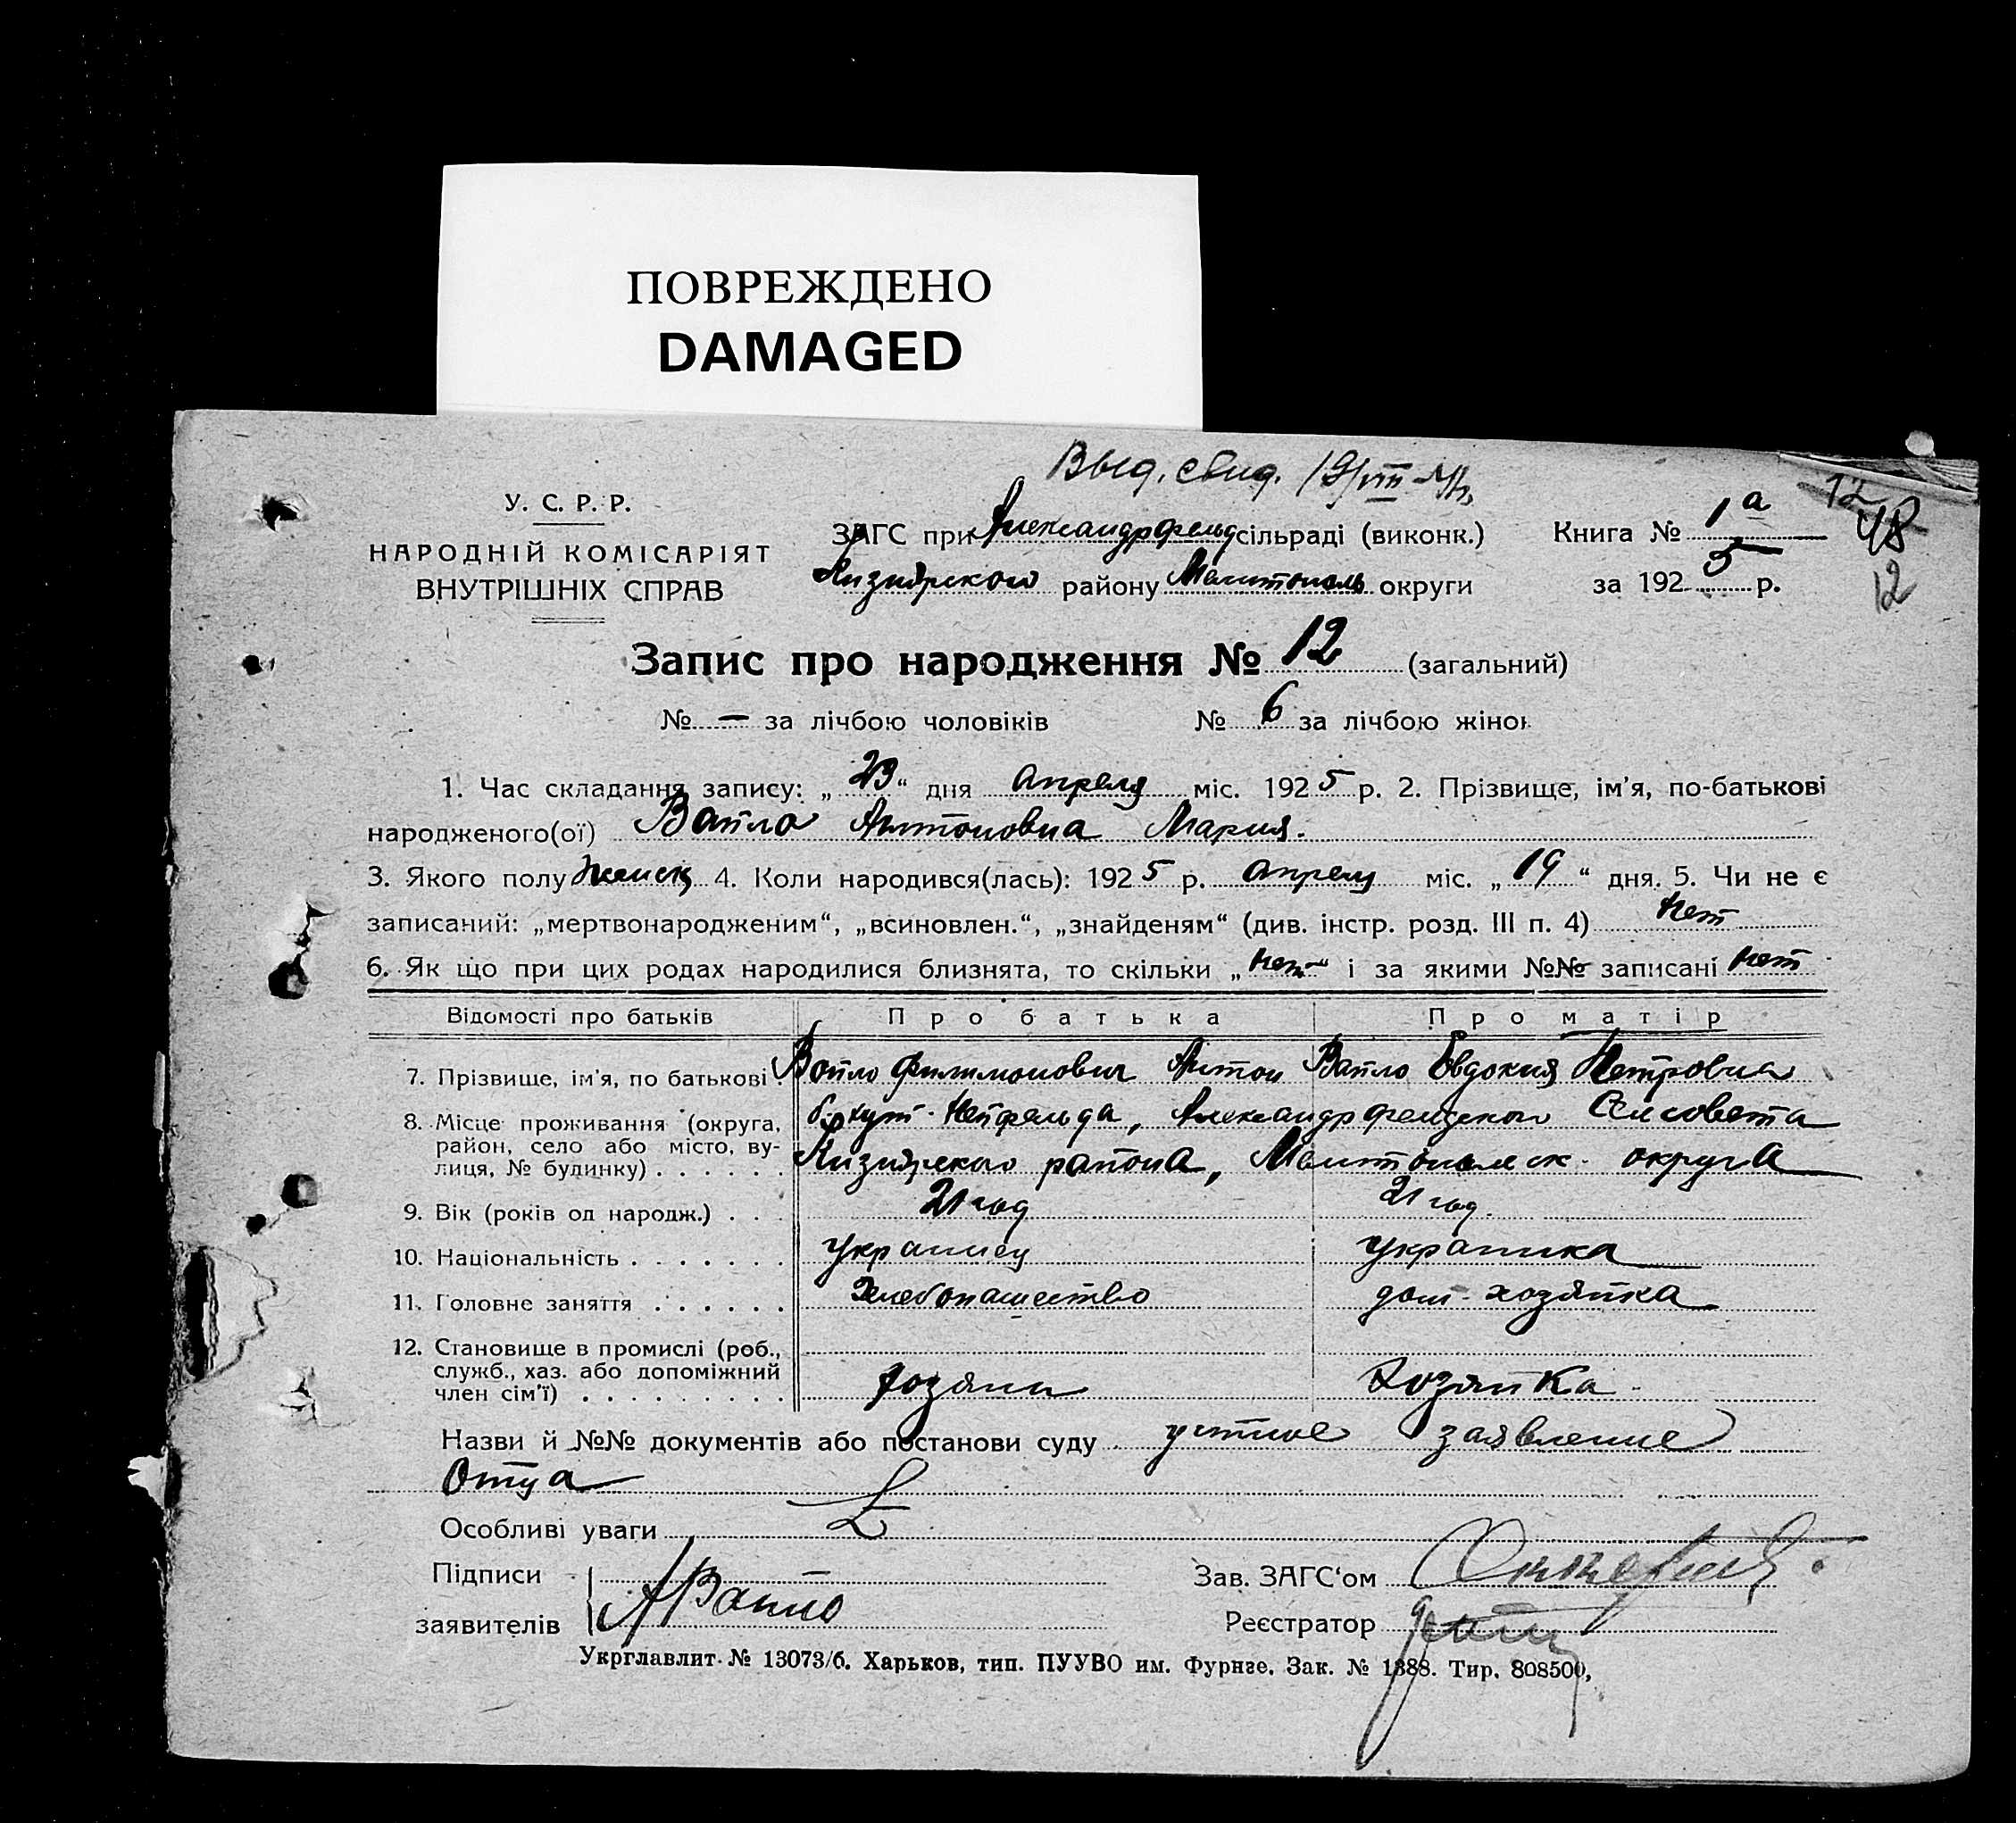 ПОВРЕЖДЕНО
DAMAGED
Выд. свид. 19/VIII
12
48
12
У. С. Р. Р.
НАРОДНІЙ КОМІСАРІЯТ
ВНУТРІШНІХ СПРАВ
ЗАГС при Александрфельд сільраді (виконк.)
Кизиярского району Мелитополь округи
Книга № 1а
за 1925 р.
Запис про народження № 12 (загальний)
№ — за лічбою чоловіків № 6 за лічбою жінок
1. Час складання запису: „23“ дня апреля міс. 1925 р. 2. Прізвище, ім'я, по-батькові
народженого(ої) Вайло Антоновна Мария.
3. Якого полу женск 4. Коли народився(лась): 1925 р. апреля міс. „19“ дня. 5. Чи не є
записаний: „мертвонародженим“, „всиновлен.“, „знайденям“ (див. інстр. розд. III п. 4) нет
6. Як що при цих родах народилися близнята, то скільки „нет“ і за якими №№ записані нет
Відомості про батьків Про батька Про матір
7. Прізвище, ім'я, по батькові. Вайло Филимонович Антон Вайло Евдокия Петровна
8. Місце проживання (округа, район, село або місто, вулиця, № будинку) хут. Нейфельда, Александрфельдского Сельсовета
Кизиярского района, Мелитопольск. округа
9. Вік (років од народж.) . . . 21 год 21 год.
10. Національність . . . . . . . украинец украинка
11. Головне заняття . . . . . . Хлебопашество дом. хозяйка
12. Становище в промислі (роб., служб., хаз. або допоміжний член сім'ї) . . . . . . . . . хозяин хозяйка.
Назви й №№ документів або постанови суду устное заявление
Отца
Особливі уваги
Підписи
заявителів АВайло
Зав. ЗАГС'ом
Реєстратор
Укрглавлит № 13073/б. Харьков, тип. ПУУВО им. Фрунзе. Зак. № 1388. Тир. 808500,